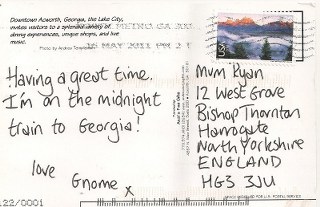 Downtown Acworth, Georgia, the Lake City,
invites visitors to a splendid variety of
dining experiences, unique shops, and live
music.
Having a great time.
I'm on the midnight
train to Georgia!
love
Gnome x
Mum Ryan
12 West Grove
Bishop Thornton
Harrogate
North Yorkshire
ENGLAND
HG3 3JU